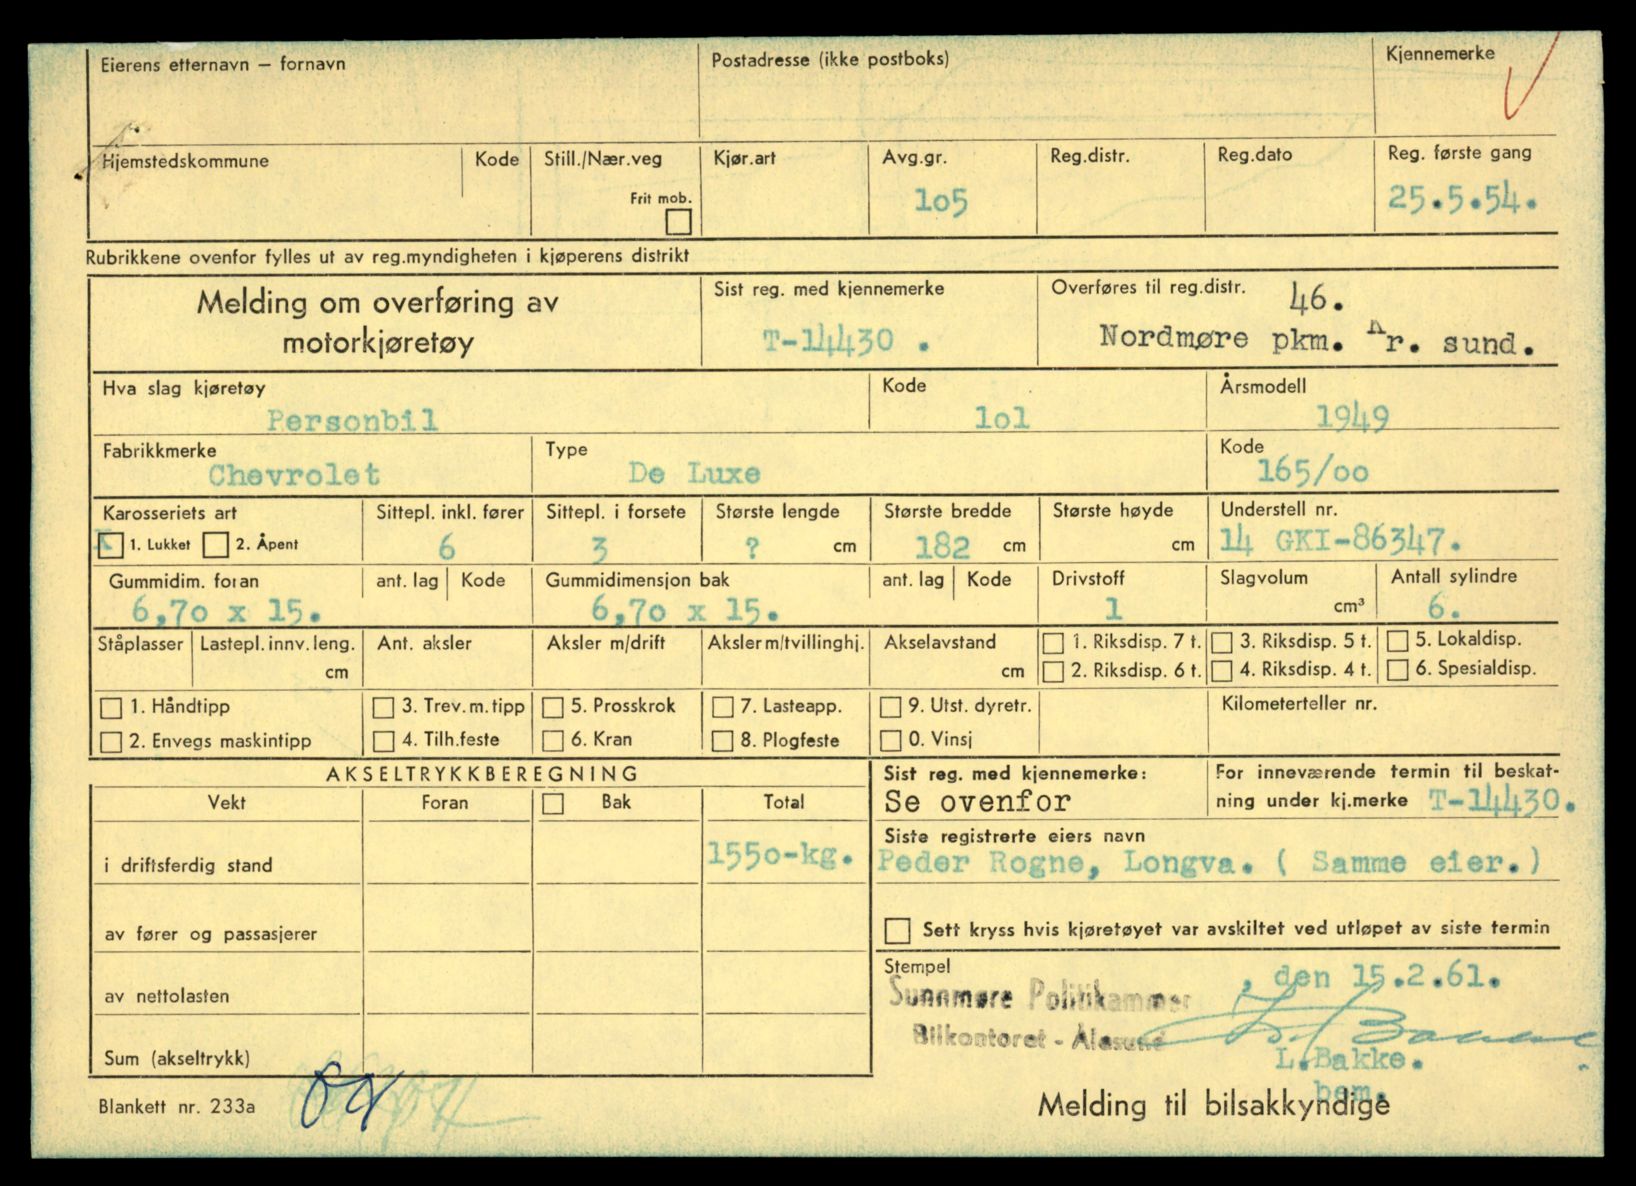 Eierens etternavn — fornavn
Postadresse (ikke postboks)
Kjennemerke
Hjemstedskommune
Kode
Still./Nær.veg
Frit mob.
Kjør.art
Avg.gr.
1o5
Reg.distr.
Reg.dato
Reg. første gang
25.5.54.
Rubrikkene ovenfor fylles ut av reg.myndigheten i kjøperens distrikt
Melding om overføring av
motorkjøretøy
Sist reg. med kjennemerke
T-14430 .
Overføres til reg.distr.
46.
Nordmøre pkm. Kr. sund.
Hva slag kjøretøy
Personbil
Kode
1o1
Årsmodell
1949
Fabrikkmerke
Chevrolet
Type
De Luxe
Kode
165/oo
Karosseriets art
X 1. Lukket 2. Åpent
Sittepl. inkl. fører
6
Sittepl. i forsete
3
Største lengde
? cm
Største bredde
182 cm
Største høyde
cm
Understell nr.
14 GKI-86347.
Gummidim. foran
6,7o x 15.
ant. lag
Kode
Gummidimensjon bak
6,7o x 15.
ant. lag
Kode
Drivstoff
1
Slagvolum
cm³
Antall sylindre
6.
Ståplasser
Lastepl. innv. leng.
cm
Ant. aksler
Aksler m/drift
Aksler m/tvillinghj.
Akselavstand
cm
1. Riksdisp. 7 t.
2. Riksdisp. 6 t.
3. Riksdisp. 5 t.
4. Riksdisp. 4 t.
5. Lokaldisp.
6. Spesialdisp.
1. Håndtipp
2. Envegs maskintipp
3. Trev. m. tipp
4. Tilh.feste
5. Prosskrok
6. Kran
7. Lasteapp.
8. Plogfeste
9. Utst. dyretr.
0. Vinsj
Kilometerteller nr.
AKSELTRYKKBEREGNING
Vekt
Foran
Bak
Total
i driftsferdig stand
155o-kg.
av fører og passasjerer
av nettolasten
Sum (akseltrykk)
Blankett nr. 233a
Sist reg. med kjennemerke:
Se ovenfor
For inneværende termin til beskat-
ning under kj.merke T-14430.
Siste registrerte eiers navn
Peder Rogne, Longva. ( Samme eier.)
Sett kryss hvis kjøretøyet var avskiltet ved utløpet av siste termin
Stempel
, den 15.2.61.
Sunnmøre Politikammer
Bilkontoret - Ålesund
L.Bakke.
bem.
Melding til bilsakkyndige